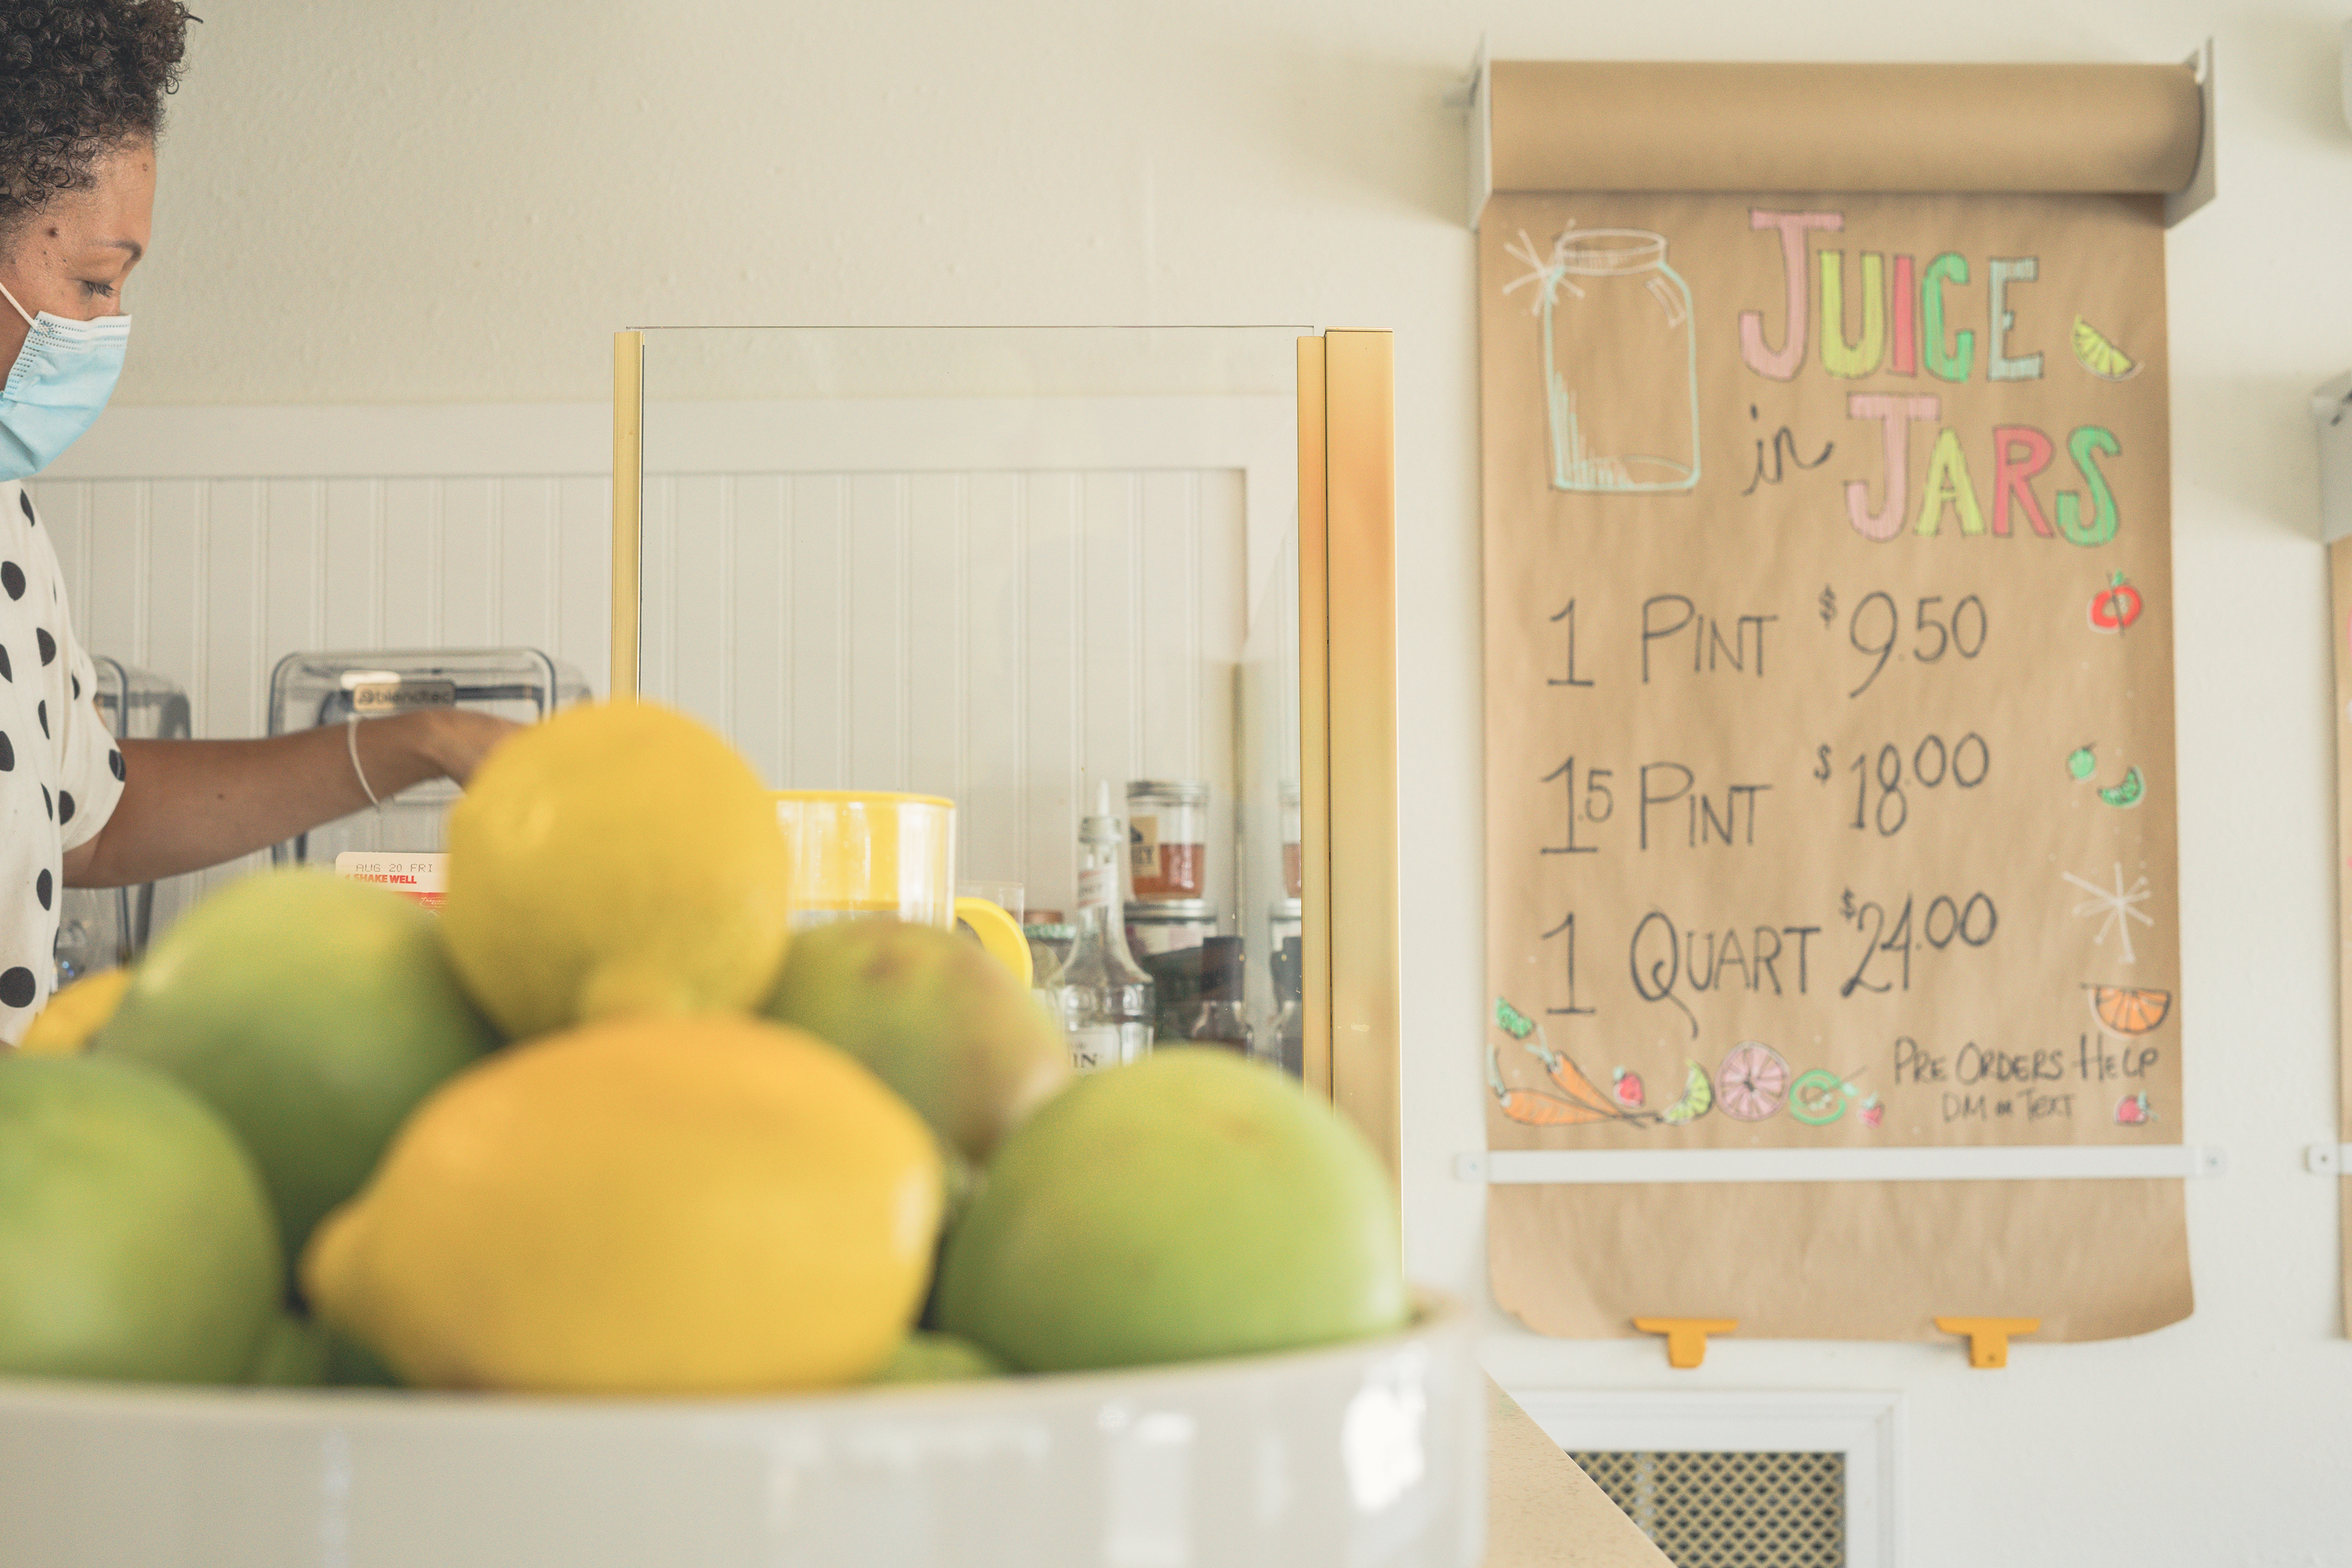 JUICE
in JARS
1 PINT $9.50
1.5 PINT $18.00
1 QUART $24.00
PRE ORDERS HELP
DM or TEXT
blendtec
AUG 20 FRI
SHAKE WELL